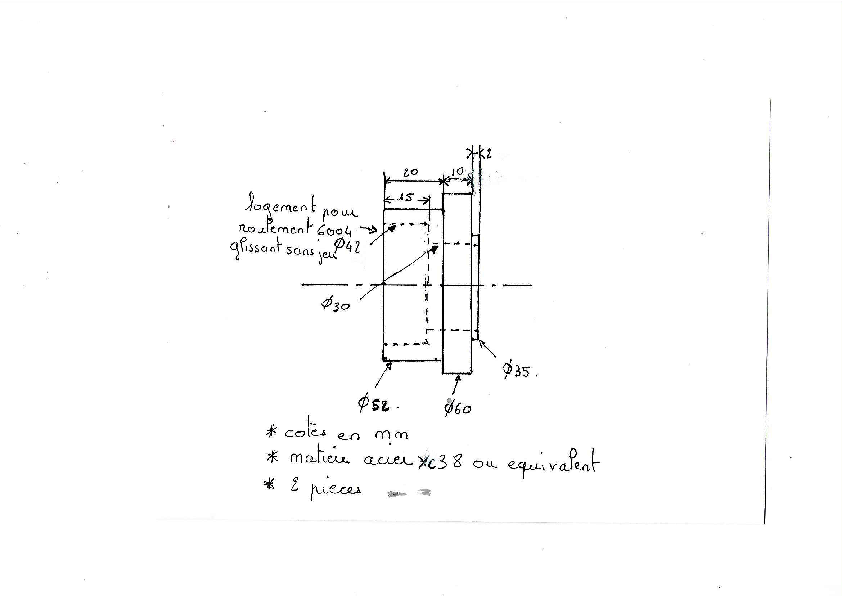 2
20
10
15
logement pour
roulement 6004
glissant sans jeu
Ø42
Ø30
Ø35.
Ø52.
Ø60
* cotes en mm
* matière acier xc38 ou equivalent
* 2 pièces